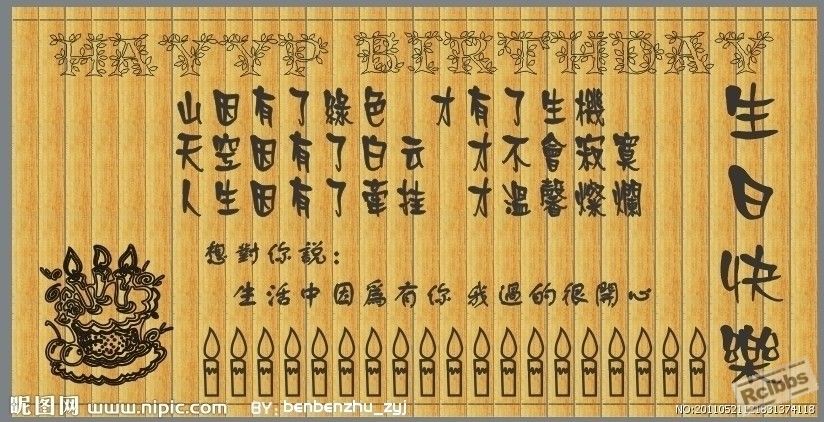 HAYYP BIRTHDAY
山因有了綠色 才有了生機
天空因有了白云 才不會寂寞
人生因有了牽挂 才溫馨燦爛
想對你說:
生活中因爲有你 我過的很開心
生日快樂
Rclbbs
昵图网 www.nipic.com BY: benbenzhu_zyj